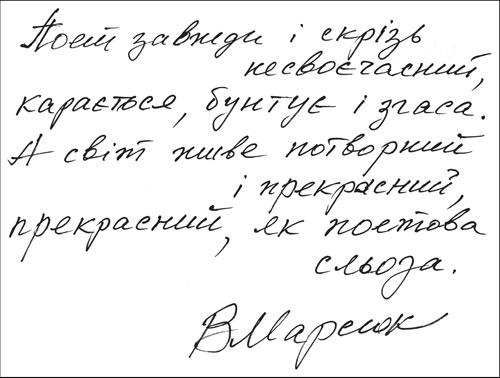 Поет завжди і скрізь
несвоєчасний,
карається, бунтує і згаса.
А світ живе потворний
і прекрасний,
прекрасний, як поетова
сльоза.
ВМарсюк